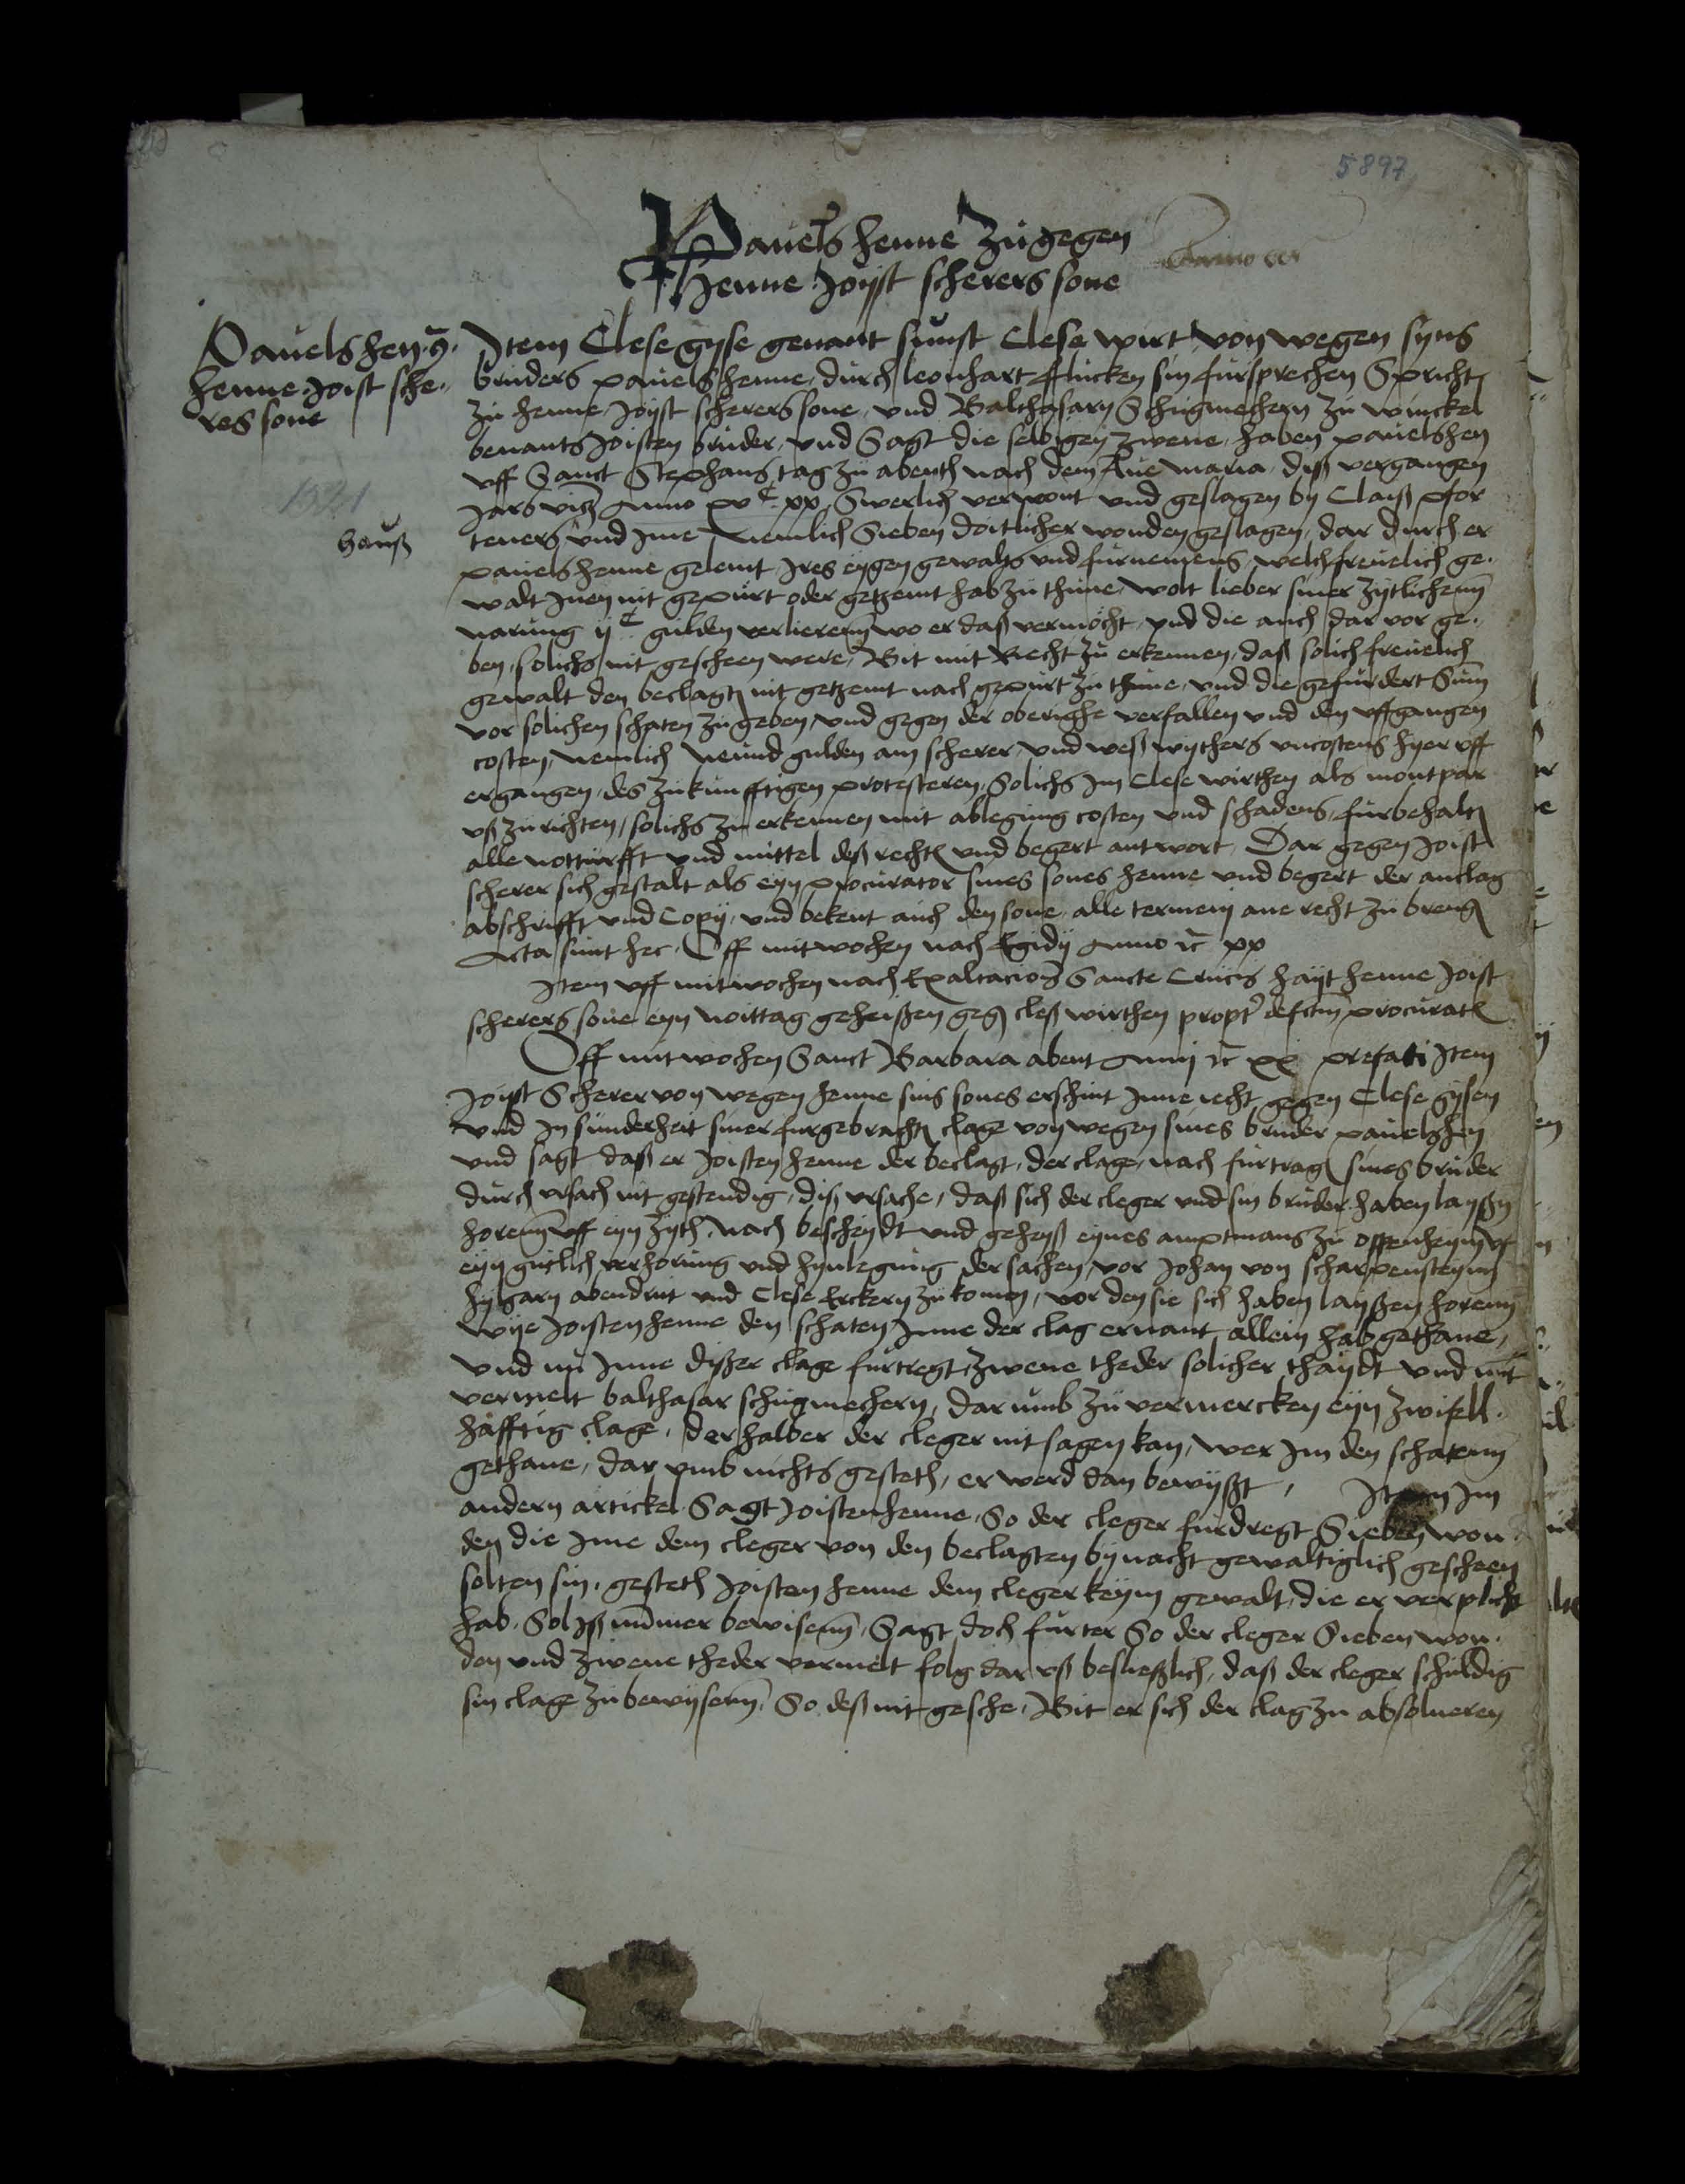 5897
Pauels henne zu gegen
Henne Joÿst scherers sone
Pauels hen
henne Joist sche¬
res sone
1521
hauß
Jtem Clese gyse genant sunst Clese wirt von wegen syns
bruders pauels henne, durch leonhart flucken sin fursprechen Spricht
zu henne Joÿst scherers sone, vnd Balthasarn Schugmechern zu winckel
benants Joisten bruder, vnd Sagt die selbigen zwene, haben pauelshen
vff Sanct Stephans tag zu abenth nach dem Aue maria, diß vergangen
Jars vitz Anno xv c xx, Swerlich verwont vnd geslagen by Claiß pfor
teners vnd Jme Nemlich Sieben doitlicher wonden geslagen, dar durch er
pauels henne gelemt Jres eygen gewalts vnd furnemens, welch freuelich ge¬
walt Jnen nit gepurt oder getzemt hab zu thune, wolt lieber siner zytlichenn
narung ij c gulden verlierenn wo er daß vermocht, vnd die auch dar vor ge¬
ben, solichs nit gescheen were, Bit mit Recht zu erkennen, daß solich freuelich
gewalt den beclagt nit getzemt nach gepurt zu thune, vnd die gefurdert Sum
vor solichen schaten zu geben vnd gegen der oberighe verfallen vnd den vffgangen
costen, nemlich neund gulden am scherer, vnd weß wythers vncostens hyer vff
ergangen, des zukunfftigen protesteren, Solichs Jm Clese wirthen als montpar
vß zu richten, solichs zu erkennen mit ablegung costen vnd schadens, furbehalt
alle notturfft vnd mittel deß rechts vnd begert antwort, Dar gegen Joist
scherer sich gestalt als eyn procurator sines sones henne vnd begert der anclag
abschrifft vnd Copÿ, vnd bekent auch den sone alle termeni ane recht zu breng
Acta sunt hec, Vff mitwochen nach Egidÿ Anno xx
Jtem vff mitwochen nach Exaltacionis Sancte Crucis hayt henne Joist
scherers sone eyn noittag geheißen geg cleß wirthen propter defectum procurat
Vff mitwochen Sanct Barbara abent Anni xx prefati Jtem
Joÿst Scherer von wegen henne sins sones erschint Jnne recht gegen Clese gysen
vnd Jn sunderheit siner furgebracht clage von wegen sines bruder pauelshen
vnd sagt daß er Joisten henne der beclagt, der clage, nach furtrag sines bruder
durch vrsach nit gestendig, diß vrsache, daß sich der cleger vnd sin bruder haben layßen
horenn vff eyn zyth, nach bescheydt vnd geheyß eynes amptmans zu oppenheym vff
eyn gutlich verhorung vnd hynlegung der sachen, vor Johan von scharpensteynn
hylgarn abendrut vnd Clese Erckern zu komen, vor den sie sich haben layßen horenn
wye Joisten henne den schaten Jnne der clag ernant allein hab gethane,
vnd nu Jnne dißer clage furtregt zwene theder solicher thaydt vnd mit
vermelt balthasar schugmechern, dar vmb zu vermercken eyn zwifell¬
hafftig clage, derhalber der cleger nit sagen kan, wer Jm den schatenn
gethane, dar vmb nichts gesteth, er werd dan bewyßt, Jtem Jm
andern artickel Sagt Joistenhenne, So der cleger furdregt Sieben won¬
den die Jme dem cleger von den beclagten by nacht gewaltiglich gescheen
solten sin, gesteth Joisten henne dem cleger keynn gewalt, die er verplicht
hab, Sol Jß nummer bewisenn, Sagt doch furter So der cleger Sieben won¬
den vnd zwene theder vermelt folg dar vß besließlich, daß der cleger schuldig
sin clage zu bewysenn, So deß nit gesche, Bit er sich der clag zu absolueren